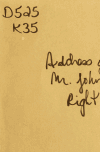 D525
K35
Address
Mr. John
Right